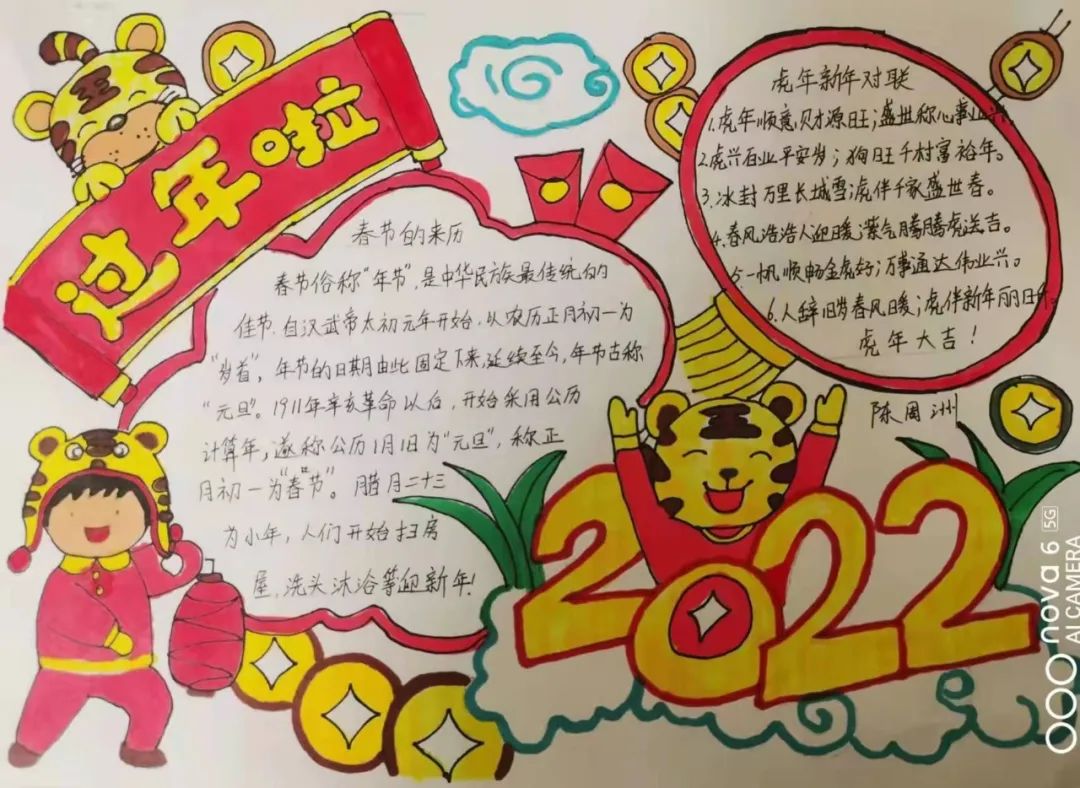 过年啦
春节的来历
春节俗称“年节”，是中华民族最传统的
佳节.自汉武帝太初元年开始，以农历正月初一为
“岁首”，年节的日期由此固定下来，延续至今，年节古称
“元旦”。1911年辛亥革命以后，开始采用公历
计算年，遂称公历1月1日为“元旦”，称正
月初一为“春节”。腊月二十三
为小年，人们开始扫房
屋，洗头沐浴等迎新年！
虎年新年对联
1.虎年顺意财源旺；盛世称心事业兴
2.虎兴百业平安岁；狗旺千村富裕年。
3.冰封万里长城雪；虎伴千家盛世春。
4.春风浩浩人迎暖；紫气腾腾虎送吉。
5.一帆顺畅金虎好；万事通达伟业兴。
6.人辞旧岁春风暖；虎伴新年丽日升
虎年大吉！
陈周洲
2022
nova 6 5G
AI CAMERA